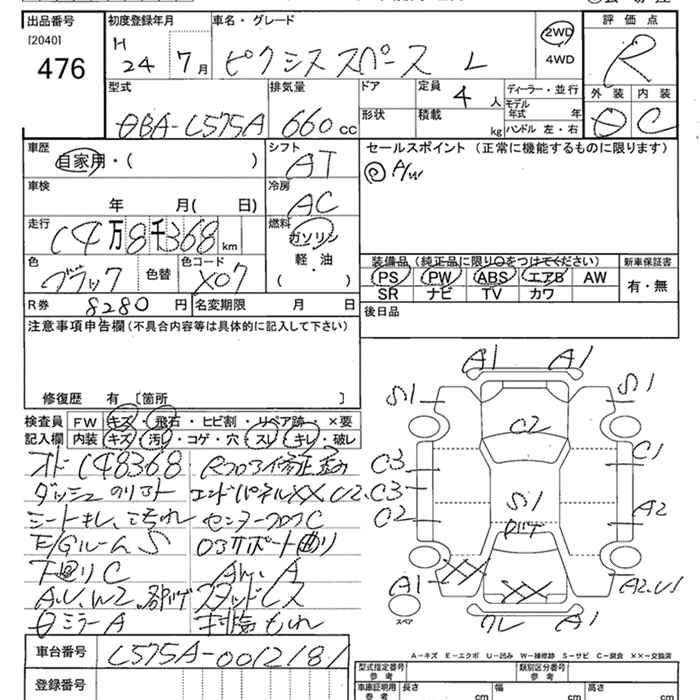 出品番号 初度登録年月 車名・グレード 評価点
[2040] H
476 24 7月 ピクシス スペース L 2WD 4WD R
型式 排気量 ドア 定員 ディーラー・並行 外装 内装
モデル年式 年
DBA-L575A 660cc 形状 積載 4人 kg ハンドル 左・右 D C
車歴 シフト セールスポイント(正常に機能するものに限ります)
自家用・( ) AT A/W
車検 冷房
年 月( 日) AC
走行 燃料
14万8千368km ガソリン
軽・油
( )
色 色替 色コード
ブラック X07
装備品(純正品に限り○をつけてください) 新車保証書
PS PW ABS エアB AW 有・無
SR ナビ TV カワ
R券 8280円 名変期限 月 日 後日品
注意事項申告欄(不具合内容等は具体的に記入して下さい)
修復歴 有 [箇所 ]
検査員 FW キズ・飛石・ヒビ割・リペア跡・×要
記入欄 内装 キズ・汚れ・コゲ・穴・スレ・キレ・破レ
オド148368
ダッシュ
シートキレ、コゲ汚れ センターフロアC
E/GルームS 03サポート曲り
下回りC AW.A
A.U.W2. スタッドレス
ミラーA
エンドパネルXX U2.C3
A1 A1
S1 S1
C2
C3 C1
C3
C2 S1 A2
A1 XX XX A2.U1
A1
スペア
A-キズ E-エクボ U-凹み W-補修跡 S-サビ C-腐食 ××-交換済
車台番号 L575A-0012181
登録番号
型式指定番号 参考 類別区分番号 参考
車庫証明用 参考 長さ cm 幅 cm 高さ cm